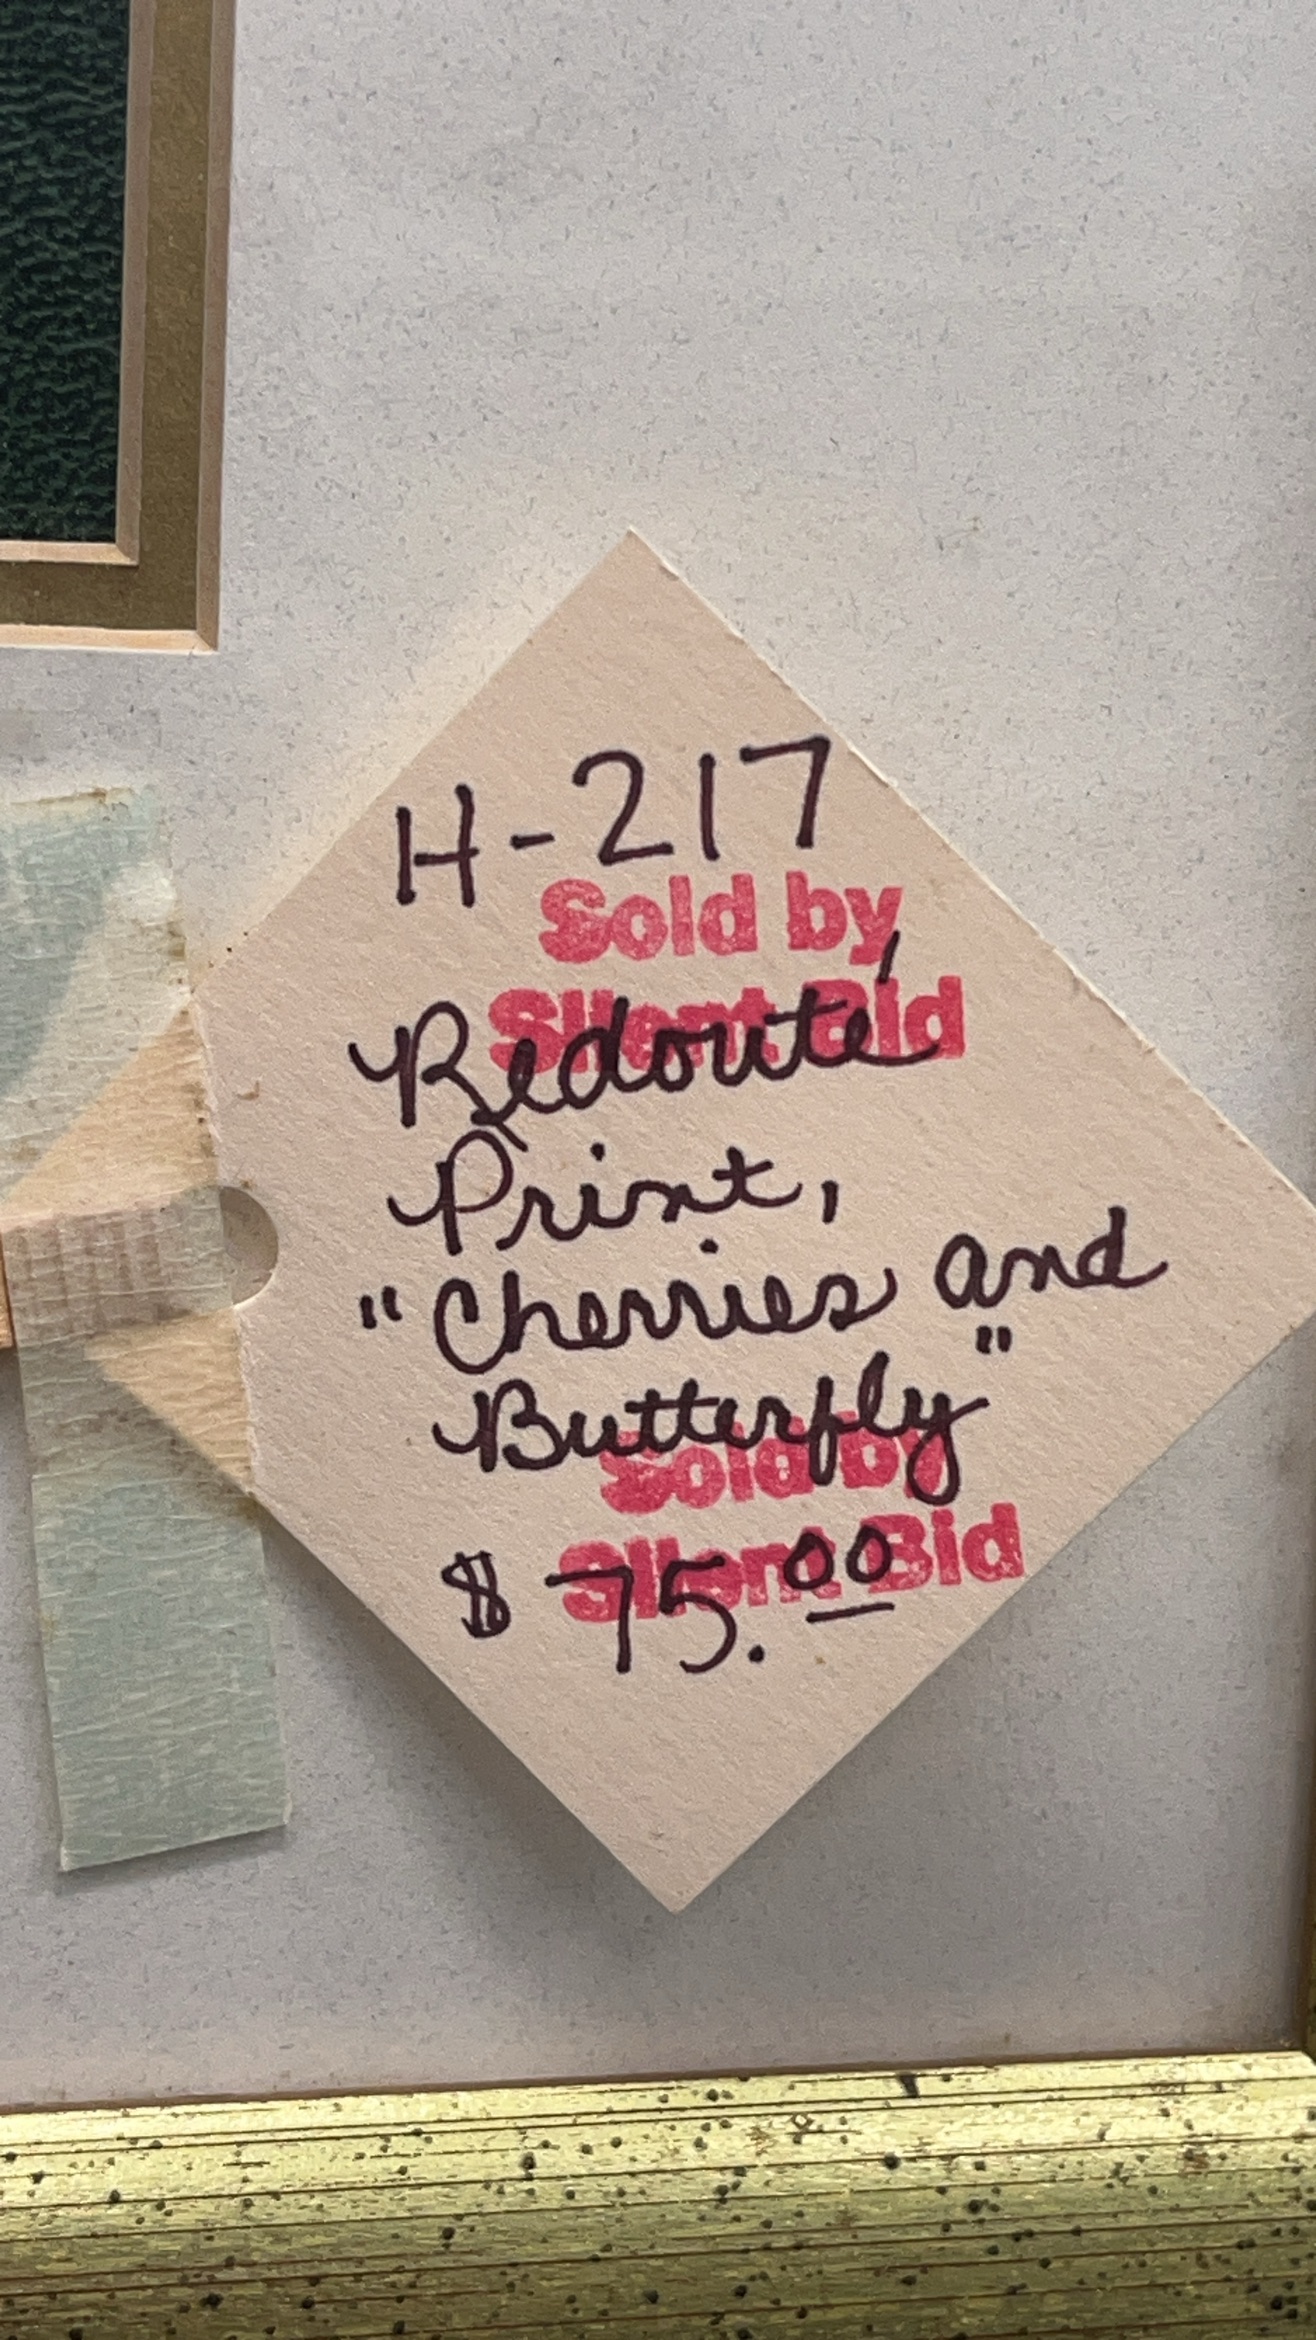 H-217
Sold by
Silent Bid
Redouté
Print,
"Cherries and
Butterfly"
Sold by
Silent Bid
$75.00